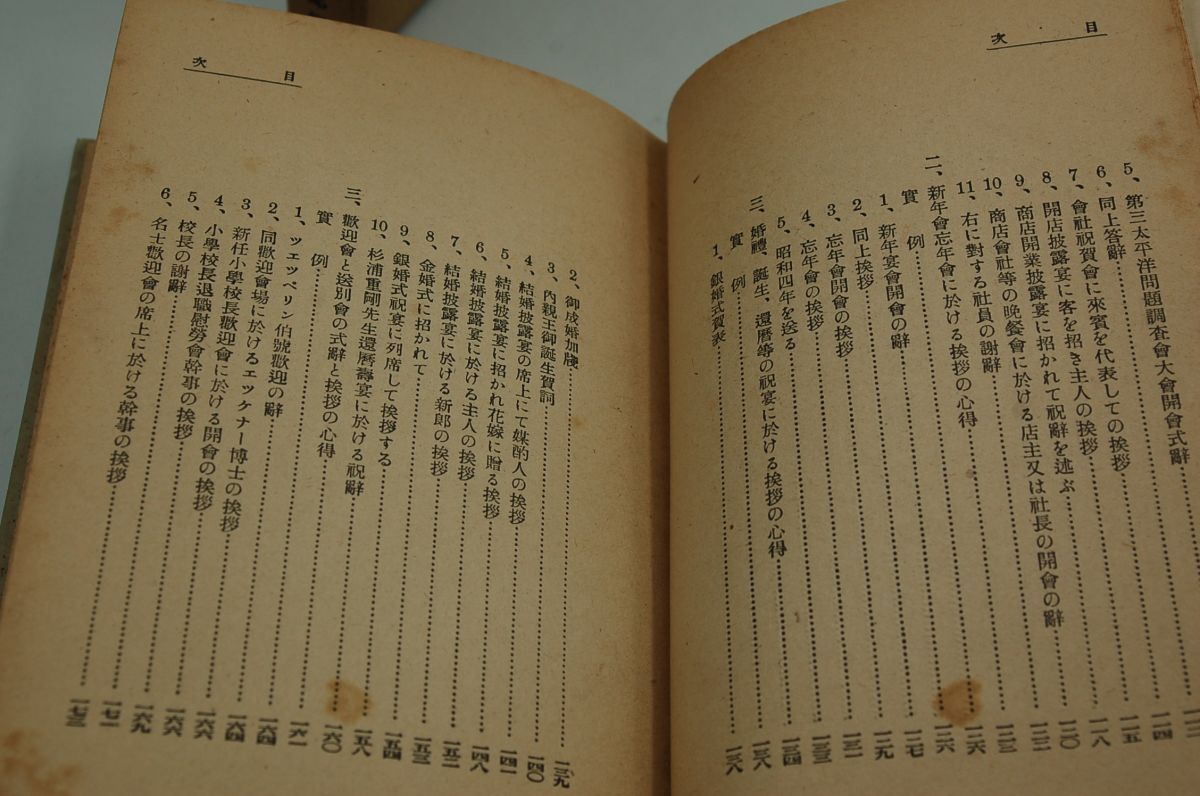 目次
5、第三太平洋問題調査會大會開會式辭
6、同上答辭
7、會社祝賀會に來賓を代表しての挨拶……一一四
8、開店披露宴に客を招き主人の挨拶……一一五
9、商店開業披露宴に招かれて祝辭を述ぶ……一一八
10、商店會社等の晩餐會に於ける店主又は社長の開會の辭……一二〇
11、右に對する社員の謝辭……一二二
二、新年會忘年會に於ける挨拶の心得……一二三
實例……一二六
1、新年宴會開會の辭……一二六
2、同上挨拶……一二七
3、忘年會開會の挨拶……一二九
4、忘年會の挨拶……一三一
5、昭和四年を送る……一三三
三、婚禮、誕生、還曆等の祝宴に於ける挨拶の心得……一三四
實例……一三八
1、銀婚式賀表……一三八
目次
2、御成婚加牋……一三九
3、內親王御誕生賀詞……一四〇
4、結婚披露宴の席上にて媒酌人の挨拶……一四一
5、結婚披露宴に招かれ花嫁に贈る挨拶……一四八
6、結婚披露宴に於ける主人の挨拶……一五二
7、結婚披露宴に於ける新郎の挨拶……一五三
8、金婚式に招かれて……一五四
9、銀婚式祝宴に列席して挨拶する……一五八
10、杉浦重剛先生還曆壽宴に於ける祝辭……一六〇
三、歡迎會と送別會の式辭と挨拶の心得……一六一
實例……一六四
1、ツェッペリン伯號歡迎の辭……一六四
2、同歡迎會場に於けるエッケナー博士の挨拶……一六六
3、新任小學校長歡迎會に於ける開會の挨拶……一六六
4、小學校長退職慰勞會幹事の挨拶……一六九
5、校長の謝辭……一七一
6、名士歡迎會の席上に於ける幹事の挨拶……一七三